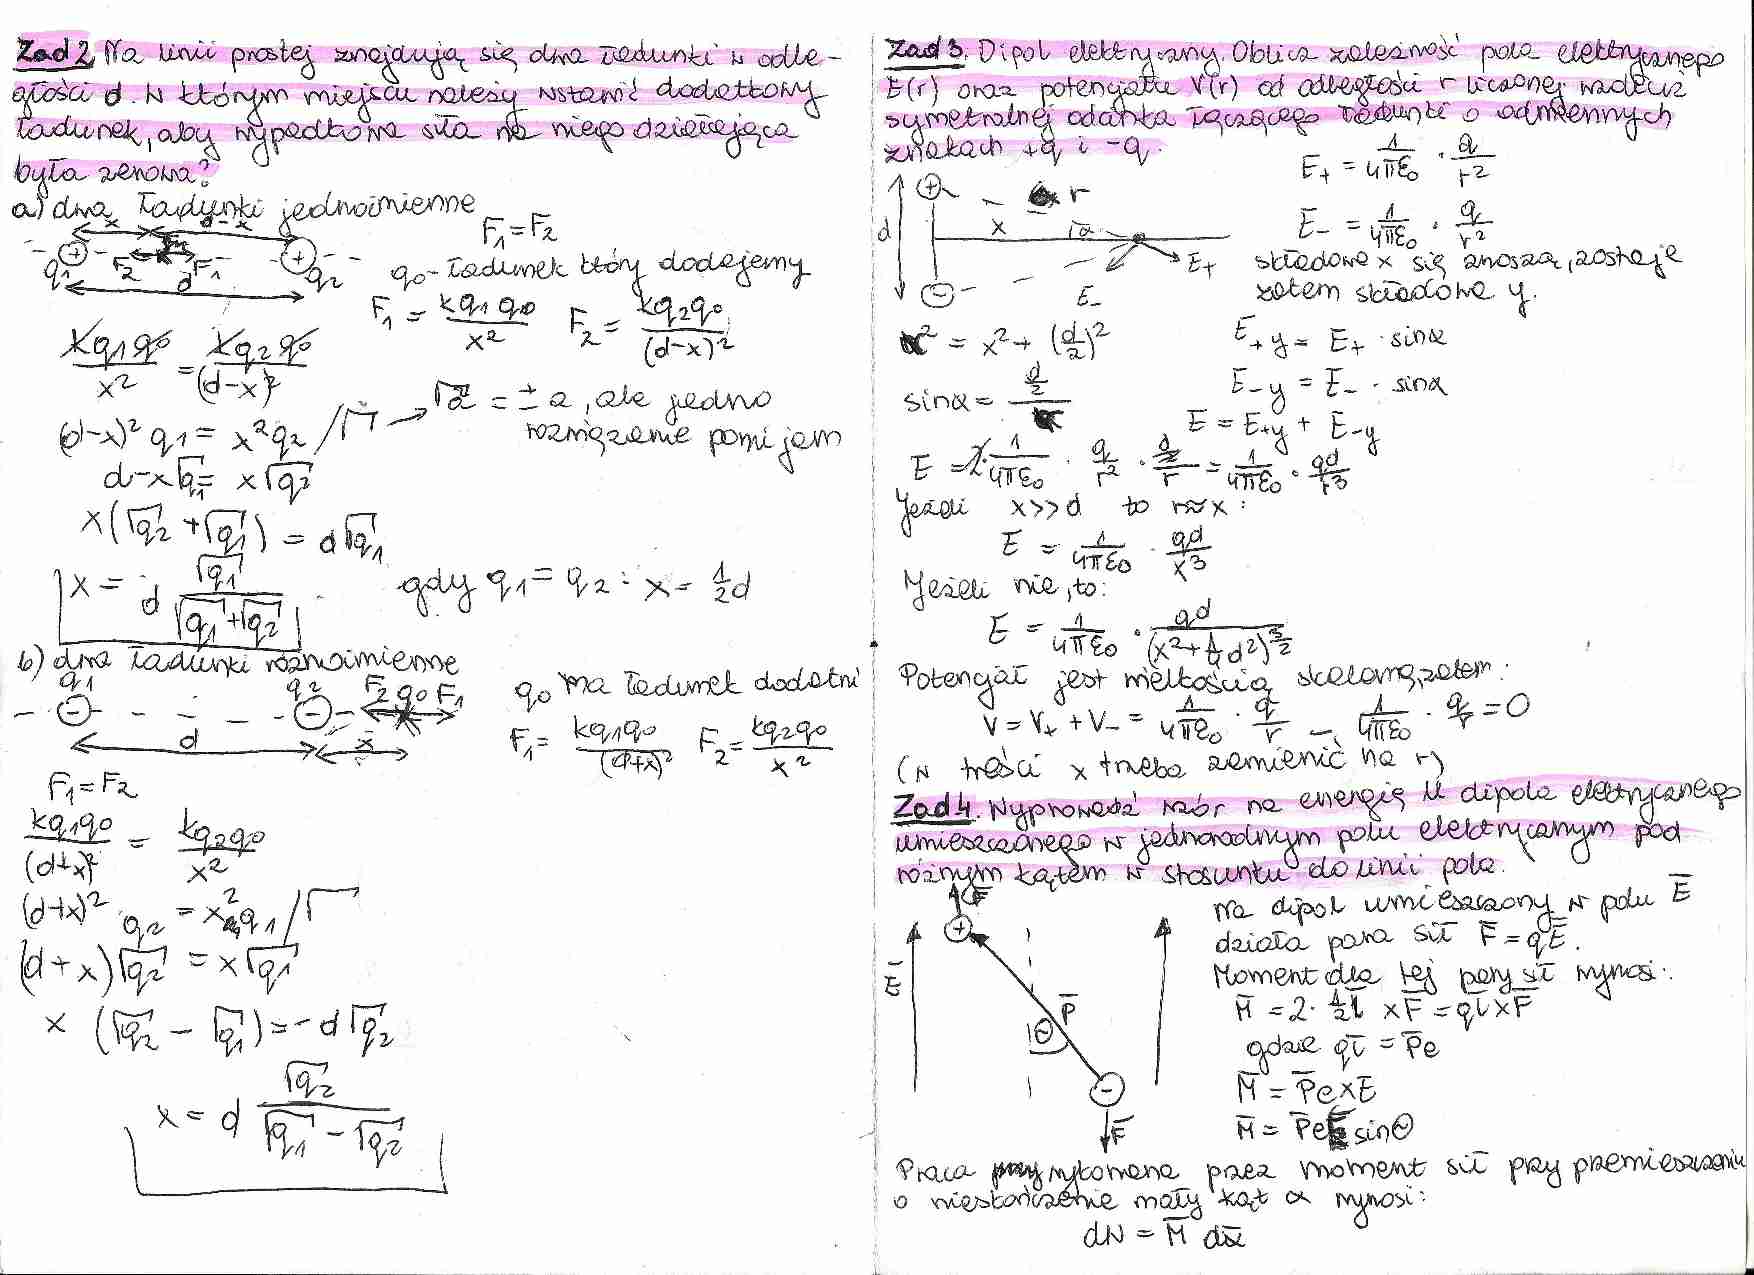 Zad 2. Na linii prostej znajdują się dwa ładunki w odle-
głości d. W którym miejscu należy wstawić dodatkowy
ładunek, aby wypadkowa siła na niego działająca
była zerowa?
a) dwa ładunki jednoimienne
x d-x
F₁ = F₂
q₁ + F₂ F₁ + q₂
d
q₀ - ładunek który dodajemy
F₁ = kq₁q₀/x² F₂ = kq₂q₀/(d-x)²
kq₁q₀/x² = kq₂q₀/(d-x)²
(d-x)² q₁ = x²q₂ /√ → √a² = ±a, ale jedno
rozwiązanie pomijam
d-x√q₁ = x√q₂
x(√q₂ + √q₁) = d√q₁
x = d √q₁/(√q₁+√q₂) gdy q₁ = q₂ : x = ½d
b) dwa ładunki różnoimienne
q₁ q₂ F₂ q₀ F₁ q₀ ma ładunek dodatni
- -
d x
F₁ = kq₁q₀/(d+x)² F₂ = kq₂q₀/x²
F₁ = F₂
kq₁q₀/(d+x)² = kq₂q₀/x²
(d+x)² q₂ = x²q₁ /√
(d+x)√q₂ = x√q₁
x (√q₂ - √q₁) = -d√q₂
x = d √q₂/(√q₁ - √q₂)
Zad 3. Dipol elektryczny. Oblicz zależność pola elektrycznego
E(r) oraz potencjału V(r) od odległości r liczonej wzdłuż
symetralnej odcinka łączącego ładunki o odmiennych
znakach +q i -q.
E₊ = 1/4πε₀ · q/r²
+ r
d x α
E₋ = 1/4πε₀ · q/r²
E₊
- E₋
składowe x się znoszą, zostaje
zatem składowa y.
r² = x² + (d/2)²
E₊y = E₊ · sinα
E₋y = E₋ · sinα
sinα = d/2 / r
E = E₊y + E₋y
E = 2· 1/4πε₀ · q/r² · d/2/r = 1/4πε₀ · qd/r³
Jeżeli x>>d to r≈x :
E = 1/4πε₀ · qd/x³
Jeżeli nie, to:
E = 1/4πε₀ · qd/(x²+¼d²)^3/2
Potencjał jest wielkością skalarną, zatem:
V = V₊ + V₋ = 1/4πε₀ · q/r - 1/4πε₀ · q/r = 0
(w treści x trzeba zamienić na r)
Zad 4. Wyprowadź wzór na energię U dipola elektrycznego
umieszczonego w jednorodnym polu elektrycznym pod
różnym kątem w stosunku do linii pola.
F̄
+
Ē
P̄
Θ
-
F̄
Na dipol umieszczony w polu Ē
działa para sił F̄ = qĒ.
Moment dla tej pary sił wynosi:
M̄ = 2· ½l̄ × F̄ = ql̄×F̄
gdzie ql̄ = P̄e
M̄ = P̄e×Ē
M̄ = P̄eE sinΘ
Praca wykonana przez moment sił przy przemieszczeniu
o nieskończenie mały kąt α wynosi:
dW = M̄ dᾱ